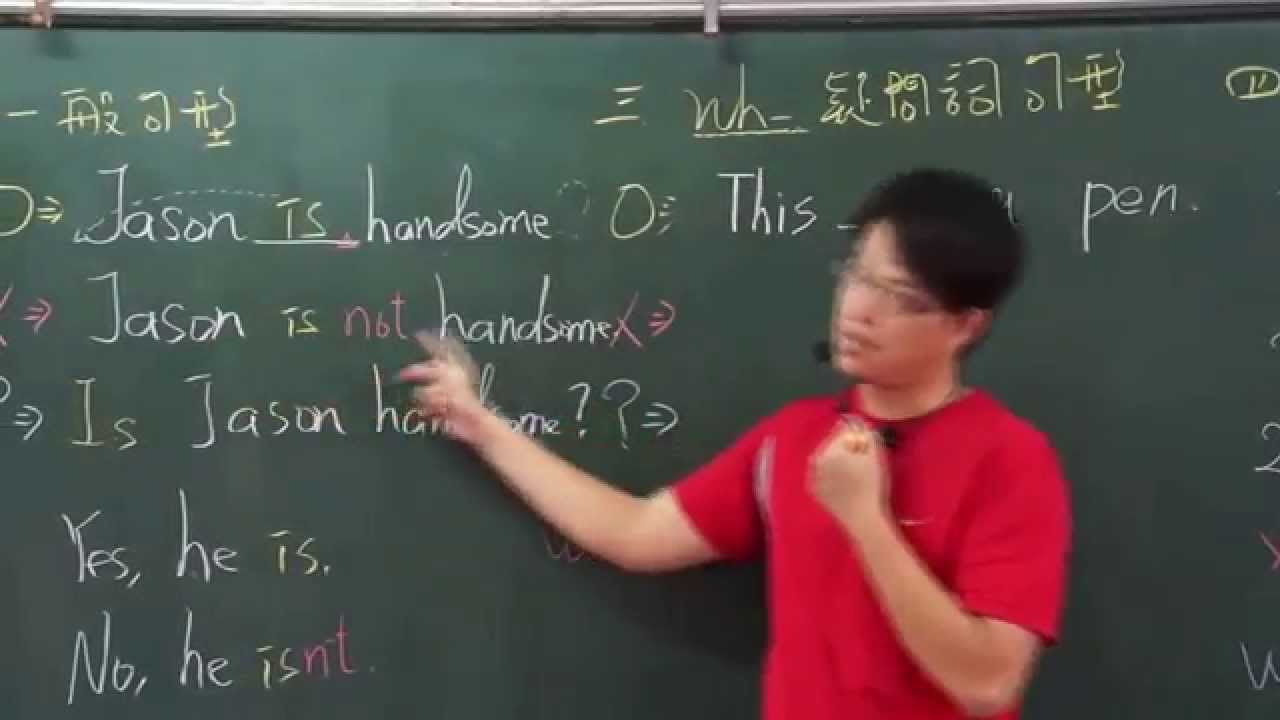 一般句型
O⇒ Jason is handsome?
X⇒ Jason is not handsome
?⇒ Is Jason handsome?
Yes, he is.
No, he isn't.
三 wh- 疑問詞句型
O⇒ This pen.
X⇒
?⇒
四
2
X
w